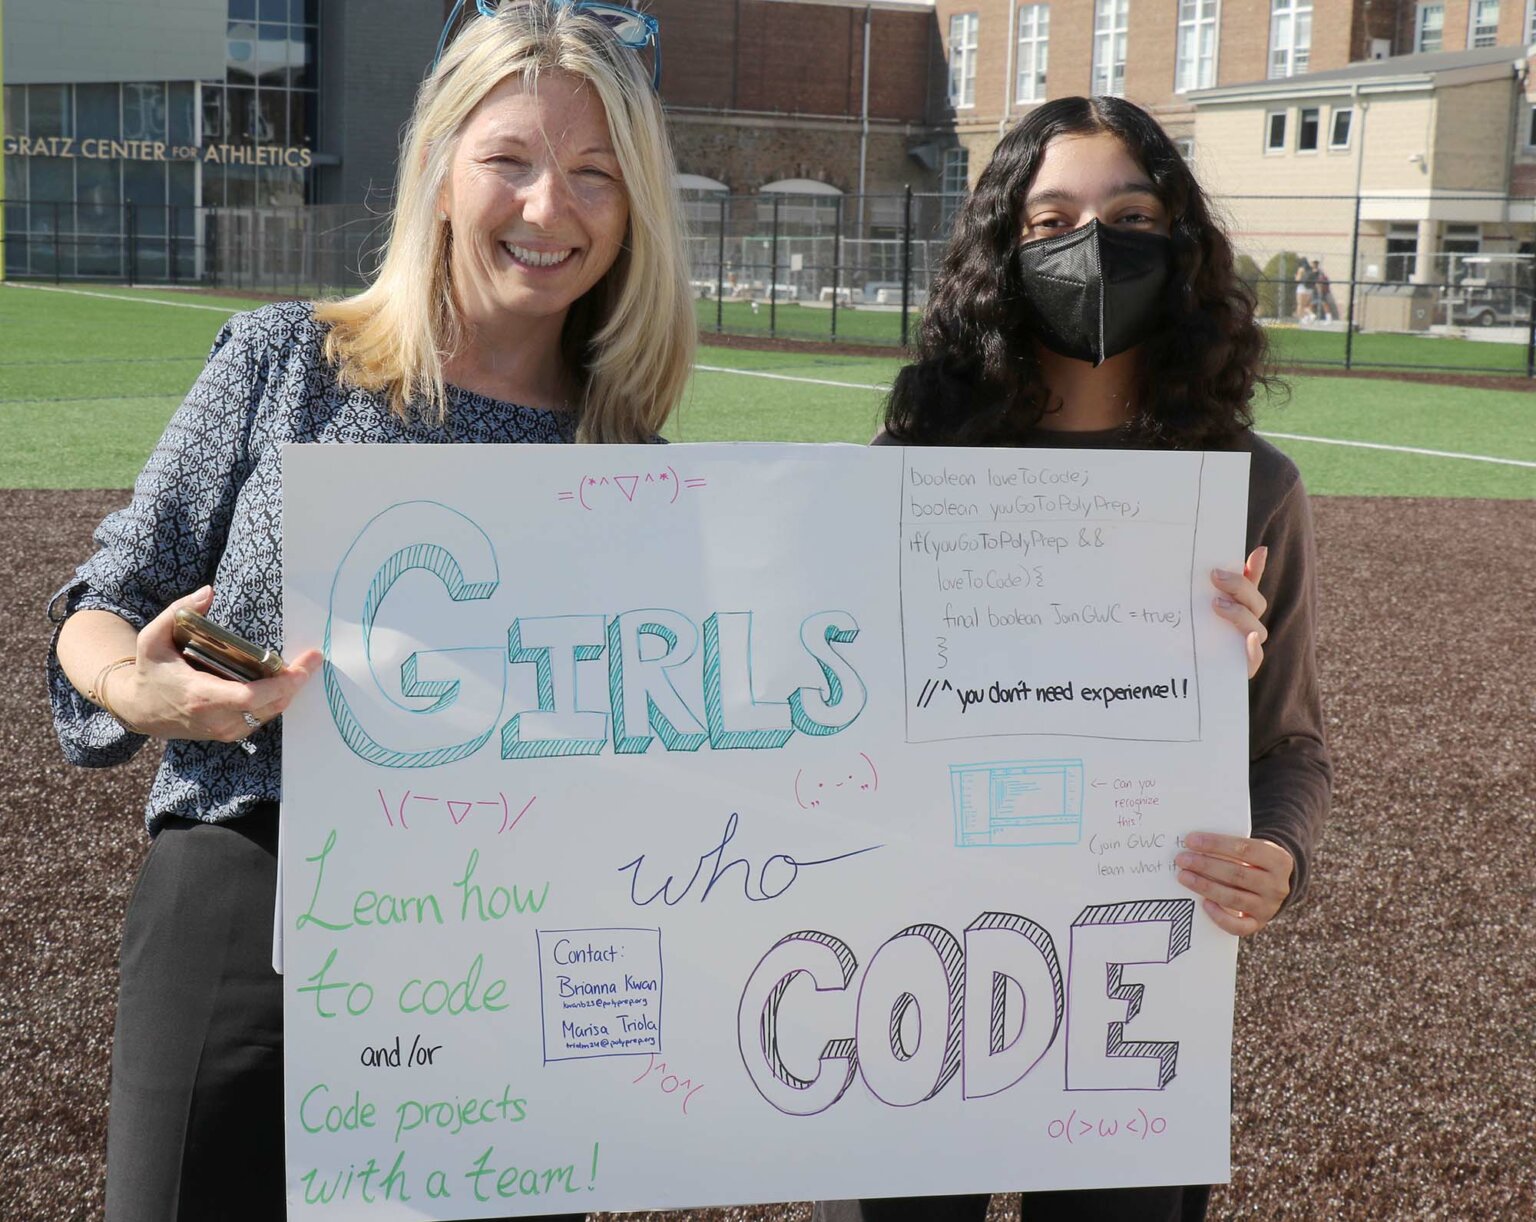 GRATZ CENTER FOR ATHLETICS
=(*^▽^*)=
GIRLS
boolean loveToCode;
boolean youGoToPolyPrep;
if(youGoToPolyPrep &&
loveToCode){
final boolean JoinGWC = true;
}
}
//^ you don't need experience!!
\(¯▽¯)/
<- can you
recognize
this?
(join GWC to
learn what i
who
CODE
Learn how
to code
and/or
Code projects
with a team!
Contact:
Brianna Kwan
kwanb23@polyprep.org
Marisa Triola
triolm24@polyprep.org
)^o^(
o(>ω<)o